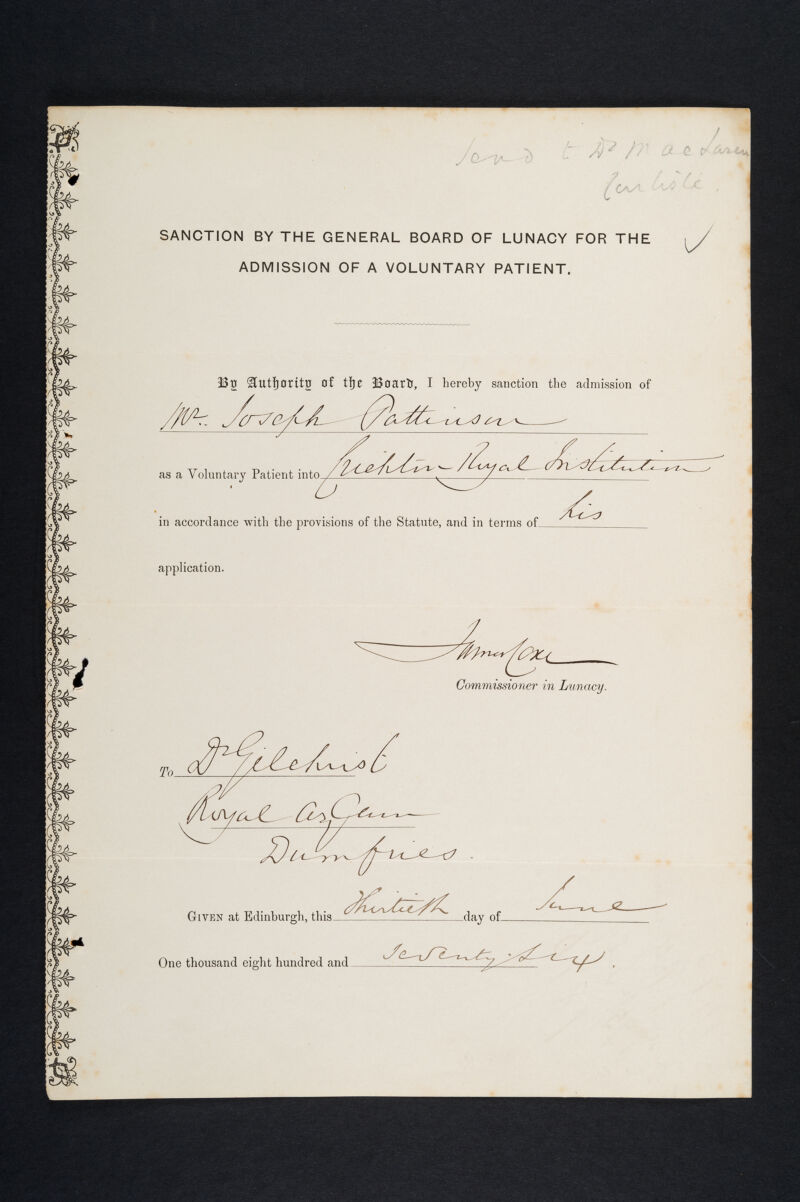 Send to Dr MacLaren
Carlisle.
SANCTION BY THE GENERAL BOARD OF LUNACY FOR THE
ADMISSION OF A VOLUNTARY PATIENT.
By Authority of the Board, I hereby sanction the admission of
Mr. Joseph Pattinson
as a Voluntary Patient into Crichton Royal Institution
in accordance with the provisions of the Statute, and in terms of his
application.
James Coxe
Commissioner in Lunacy.
To Dr Gilchrist
Royal Asylum
Dumfries.
GIVEN at Edinburgh, this Thirtieth day of June
One thousand eight hundred and Seventy-Six.